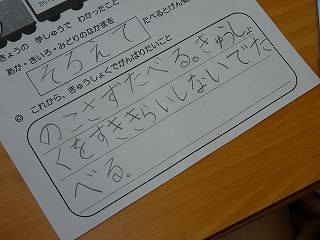 きょうの 学しゅうで わかったこと
あか・きいろ・みどりのなかまを
そろえて たべるとげん
◎ これから、きゅうしょくでがんばりたいこと
のこさずたべる。きゅうしょ
くをすききらいしないでた
べる。